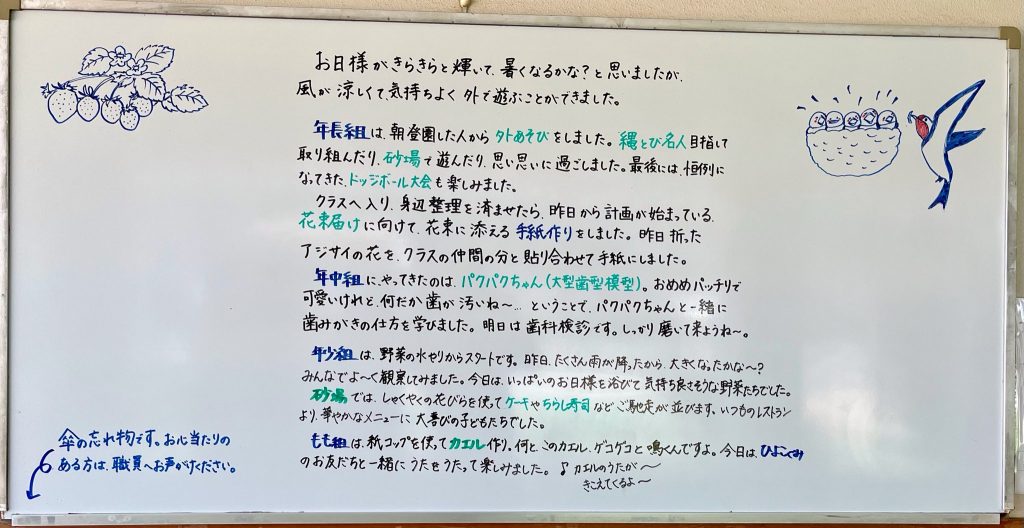 お日様がきらきらと輝いて、暑くなるかな?と思いましたが、
風が涼しくて、気持ちよく外で遊ぶことができました。
年長組は、朝登園した人から外あそびをしました。縄とび名人目指して
取り組んだり、砂場で遊んだり、思い思いに過ごしました。最後には、恒例に
なってきた、ドッジボール大会も楽しみました。
クラスへ入り、身辺整理を済ませたら、昨日から計画が始まっている、
花束届けに向けて、花束に添える手紙作りをしました。昨日折った
アジサイの花を、クラスの仲間の分と貼り合わせて手紙にしました。
年中組に、やってきたのは、パクパクちゃん(大型歯型模型)。おめめパッチリで
可愛いけれど、何だか歯が汚いね〜…ということで、パクパクちゃんと一緒に
歯みがきの仕方を学びました。明日は歯科検診です。しっかり磨いて来ようね〜。
年少組は、野菜の水やりからスタートです。昨日、たくさん雨が降ったから、大きくなったかな〜?
みんなでよ〜く観察してみました。今日は、いっぱいのお日様を浴びて気持ち良さそうな野菜たちでした。
砂場では、しゃくやくの花びらを使ってケーキやちらし寿司などご馳走が並びます。いつものレストラン
より、華やかなメニューに大喜びの子どもたちでした。
もも組は、紙コップを使ってカエル作り。何と、このカエル、ゲコゲコと鳴くんですよ。今日は、ひよこぐみ
のお友だちと一緒にうたをうたって楽しみました。♪カエルのうたが〜
きこえてくるよ〜
傘の忘れ物です。お心当たりの
ある方は、職員へお声がけください。